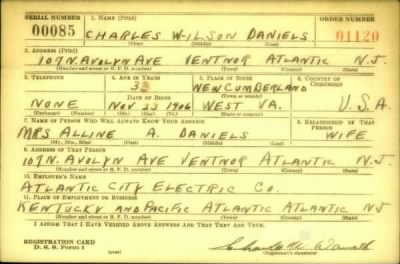 SERIAL NUMBER 1. NAME (Print) ORDER NUMBER
00085 CHARLES WILSON DANIELS 01120
(First) (Middle) (Last)
2. ADDRESS (Print)
107 N. AVOLYN AVE VENTNOR ATLANTIC N.J.
(Number and street or R. F. D. number) (Town) (County) (State)
3. TELEPHONE 4. AGE IN YEARS 5. PLACE OF BIRTH 6. COUNTRY OF CITIZENSHIP
33 NEW CUMBERLAND
DATE OF BIRTH (Town or county)
NONE NOV 23 1906 WEST VA. U.S.A.
(Exchange) (Number) (Mo.) (Day) (Yr.) (State or country)
7. NAME OF PERSON WHO WILL ALWAYS KNOW YOUR ADDRESS 8. RELATIONSHIP OF THAT PERSON
MRS ALLINE A. DANIELS WIFE
(Mr., Mrs., Miss) (First) (Middle) (Last)
9. ADDRESS OF THAT PERSON
107 N. AVOLYN AVE VENTNOR ATLANTIC N.J.
(Number and street or R. F. D. number) (Town) (County) (State)
10. EMPLOYER'S NAME
ATLANTIC CITY ELECTRIC CO.
11. PLACE OF EMPLOYMENT OR BUSINESS
KENTUCKY AND PACIFIC ATLANTIC ATLANTIC NJ
(Number and street or R. F. D. number) (Town) (County) (State)
I AFFIRM THAT I HAVE VERIFIED ABOVE ANSWERS AND THAT THEY ARE TRUE.
REGISTRATION CARD
D. S. S. Form 1
(over) (Registrant's signature)